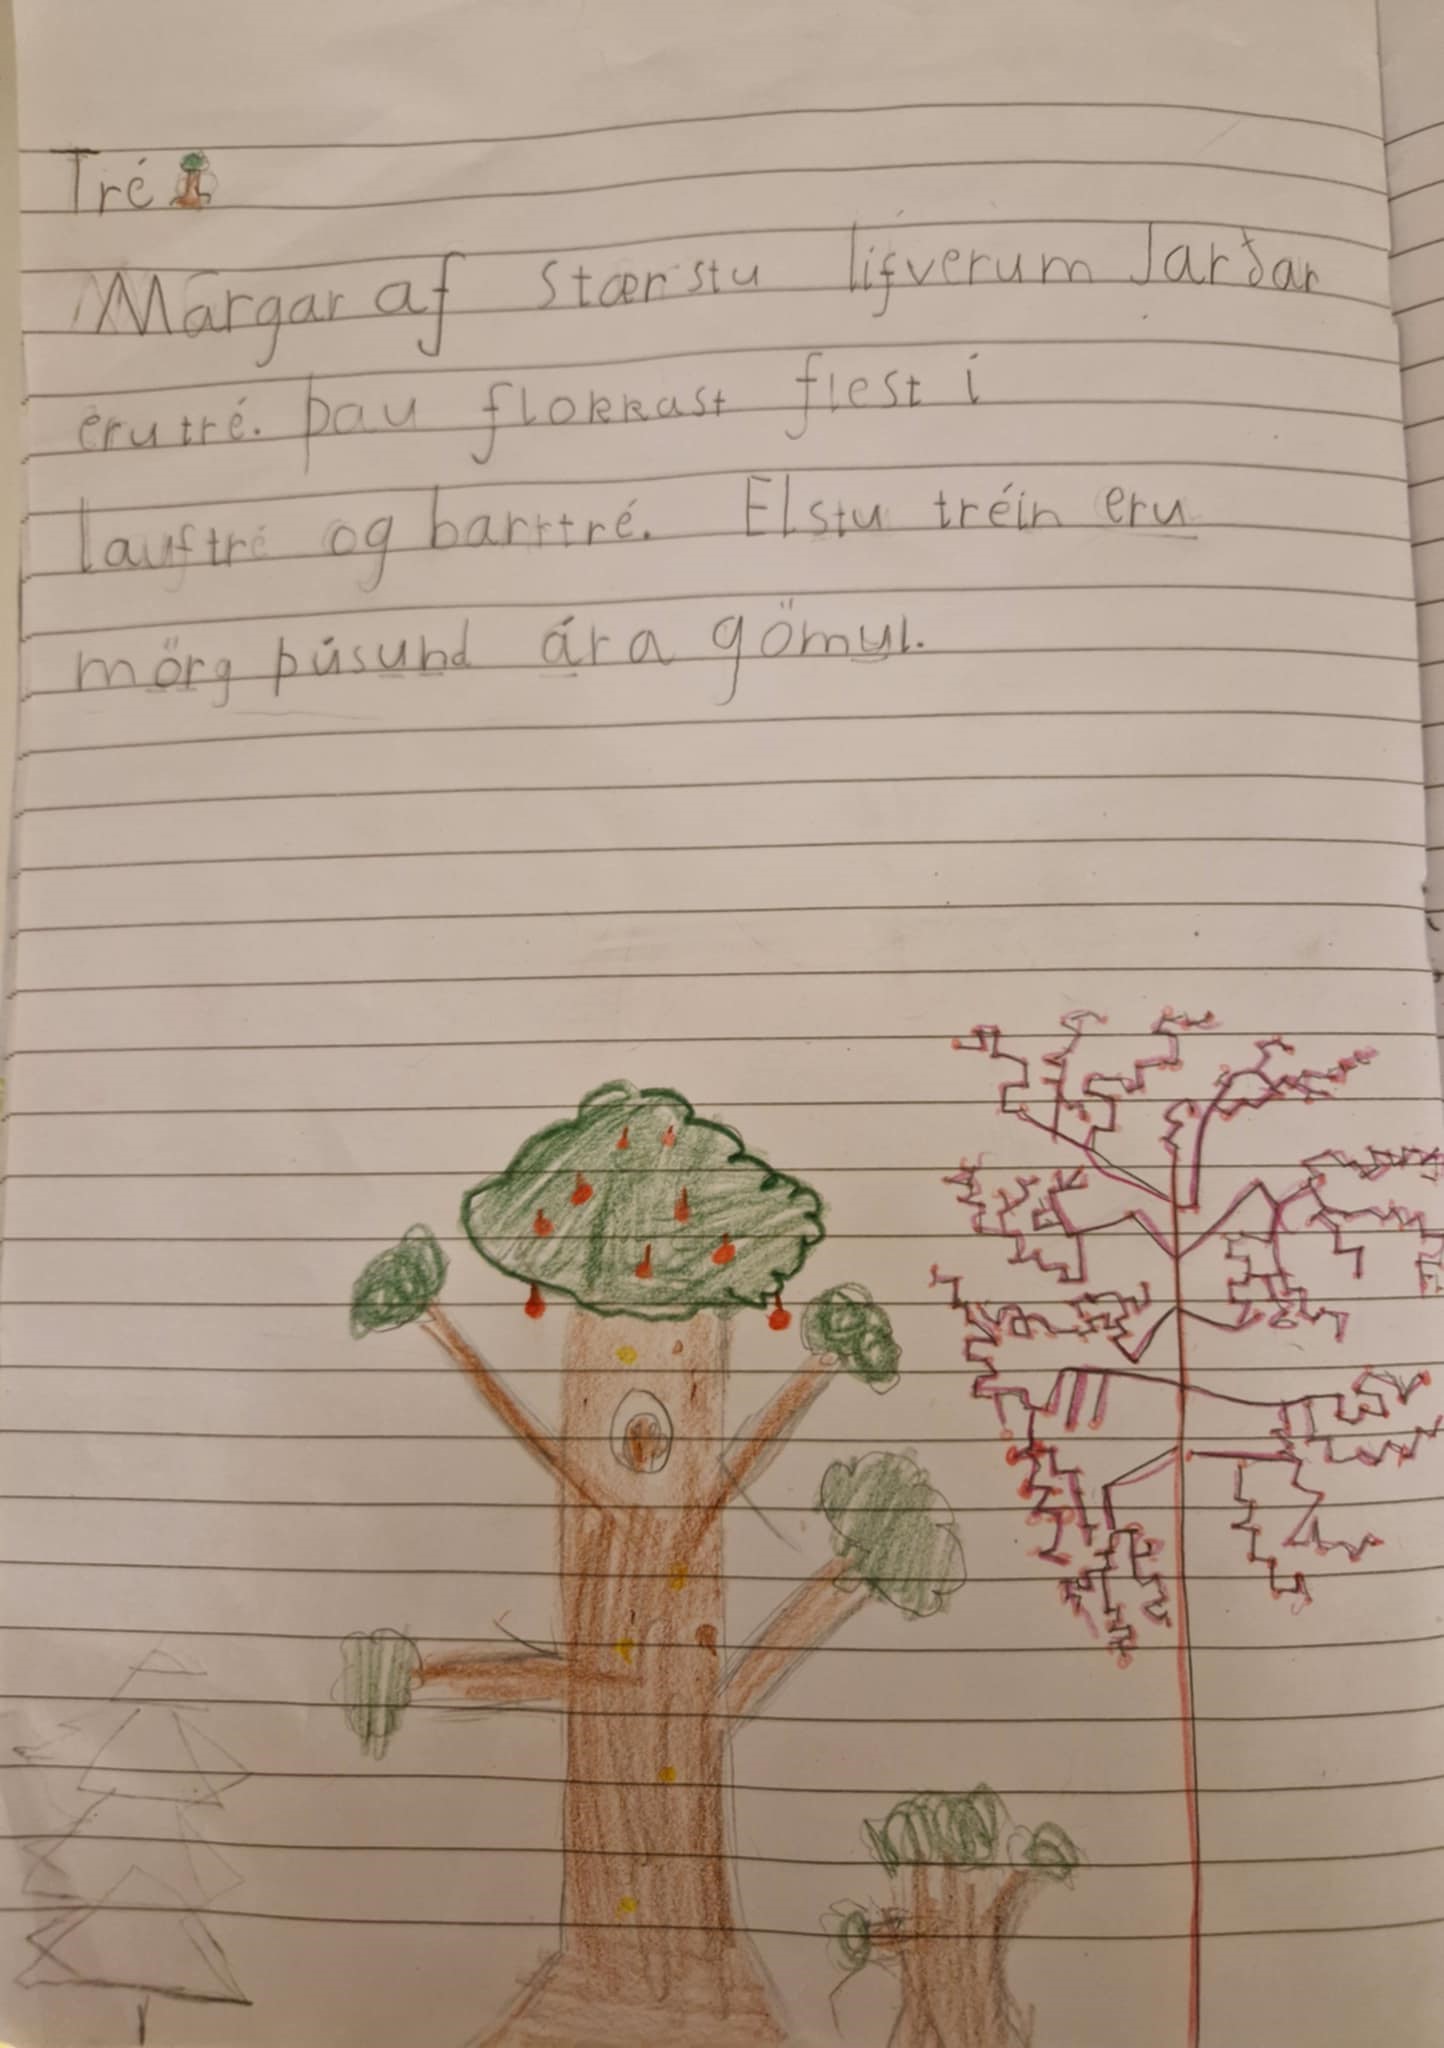 Tré
Margar af stærstu lífverum Jarðar
eru tré. Þau flokkast flest í
lauftré og barrtré. Elstu tréin eru
mörg þúsund ára gömul.